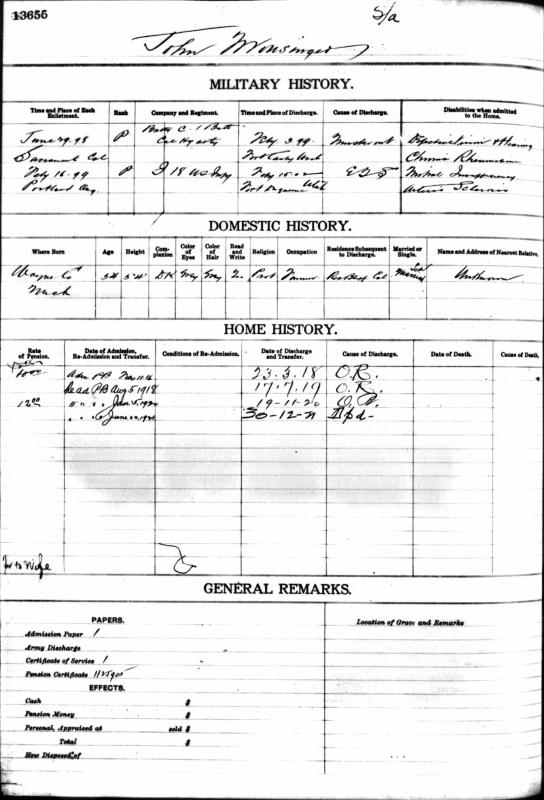 13655
S/a
John Monsinger
MILITARY HISTORY.
Time and Place of Each Enlistment. Rank Company and Regiment. Time and Place of Discharge. Cause of Discharge. Disabilities when admitted to the Home.
June 29. 98 P Batty C. 1 Batt Feby 3 99 Muster out
Cal Hy arty
Sacramento Cal Chronic Rheumatism
Feby 16-99 P I 18 US Infy Feby 15-02 E T S Mitral Insufficiency
Portland Org. Utah Arterio Sclerosis
DOMESTIC HISTORY.
Where Born Age Height Complexion Color of Eyes Color of Hair Read and Write Religion Occupation Residence Subsequent to Discharge. Married or Single. Name and Address of Nearest Relative.
Wayne Co 54 5'4" DK Grey Gray Yes Prot Farmer Red Bluff Cal Married Unknown
Mich
HOME HISTORY.
Rate of Pension. Date of Admission, Re-Admission and Transfer. Conditions of Re-Admission. Date of Discharge and Transfer. Cause of Discharge. Date of Death. Cause of Death.
Adm PB Feby 11-16 23.3.18 O.R.
Read PB Aug 5 1918 17.7.19 O.R.
12.00 " " Jan 5, 1920 19-11-20
" " June 20, 1921 30-12-21 Dpd-
to Wife
GENERAL REMARKS.
PAPERS.
Location of Grave and Remarks
Admission Paper 1
Army Discharge
Certificate of Service 1
Pension Certificate 1125905
EFFECTS.
Cash $
Pension Money $
Personal, Appraised at sold $
Total $
How Disposed of